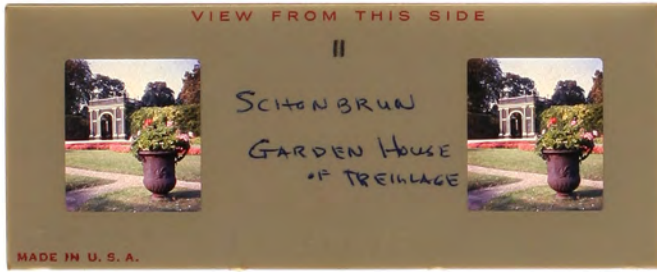 VIEW FROM THIS SIDE
11
SCHONBRUN
GARDEN HOUSE
OF TREILLAGE
MADE IN U. S. A.